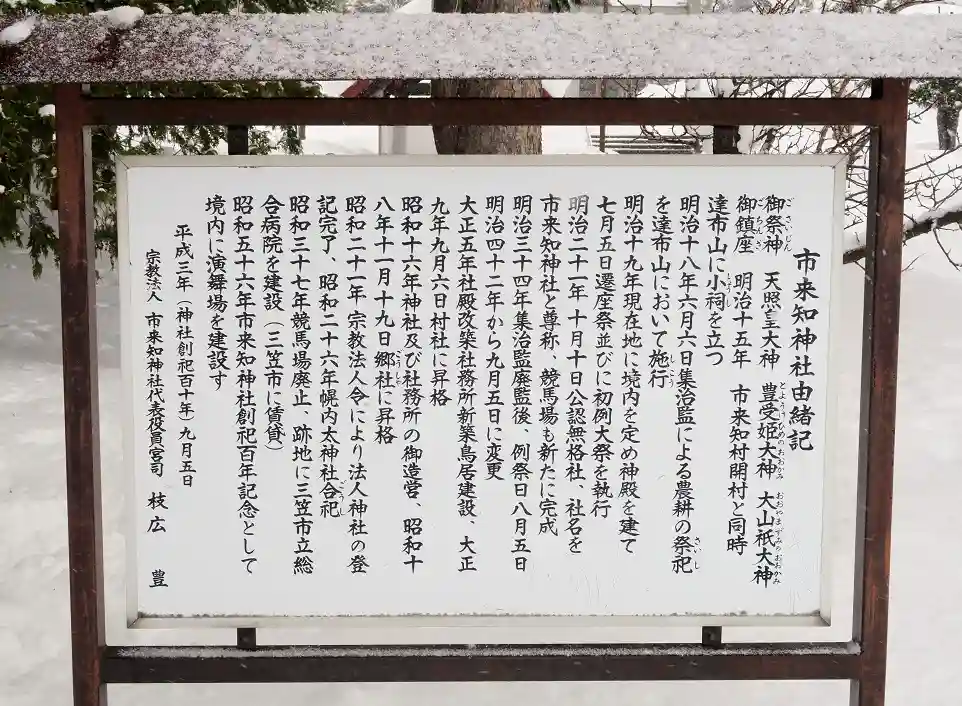 市来知神社由緒記
御祭神　天照皇大神　豊受姫大神　大山祇大神
御鎮座　明治十五年　市来知村開村と同時
達布山に小祠を立つ
明治十八年六月六日集治監による農耕の祭祀
を達布山において施行
明治十九年現在地に境内を定め神殿を建て
七月五日遷座祭並びに初例大祭を執行
明治二十一年十月十日公認無格社、社名を
市来知神社と尊称、競馬場も新たに完成
明治三十四年集治監廃監後、例祭日八月五日
明治四十二年から九月五日に変更
大正五年社殿改築社務所新築鳥居建設、大正
九年九月六日村社に昇格
昭和十六年神社及び社務所の御造営、昭和十
八年十一月十九日郷社に昇格
昭和二十一年宗教法人令により法人神社の登
記完了、昭和二十六年幌内太神社合祀
昭和三十七年競馬場廃止、跡地に三笠市立総
合病院を建設（三笠市に賃貸）
昭和五十六年市来知神社創祀百年記念として
境内に演舞場を建設す
平成三年（神社創祀百十年）九月五日
宗教法人　市来知神社代表役員宮司　枝広　豊